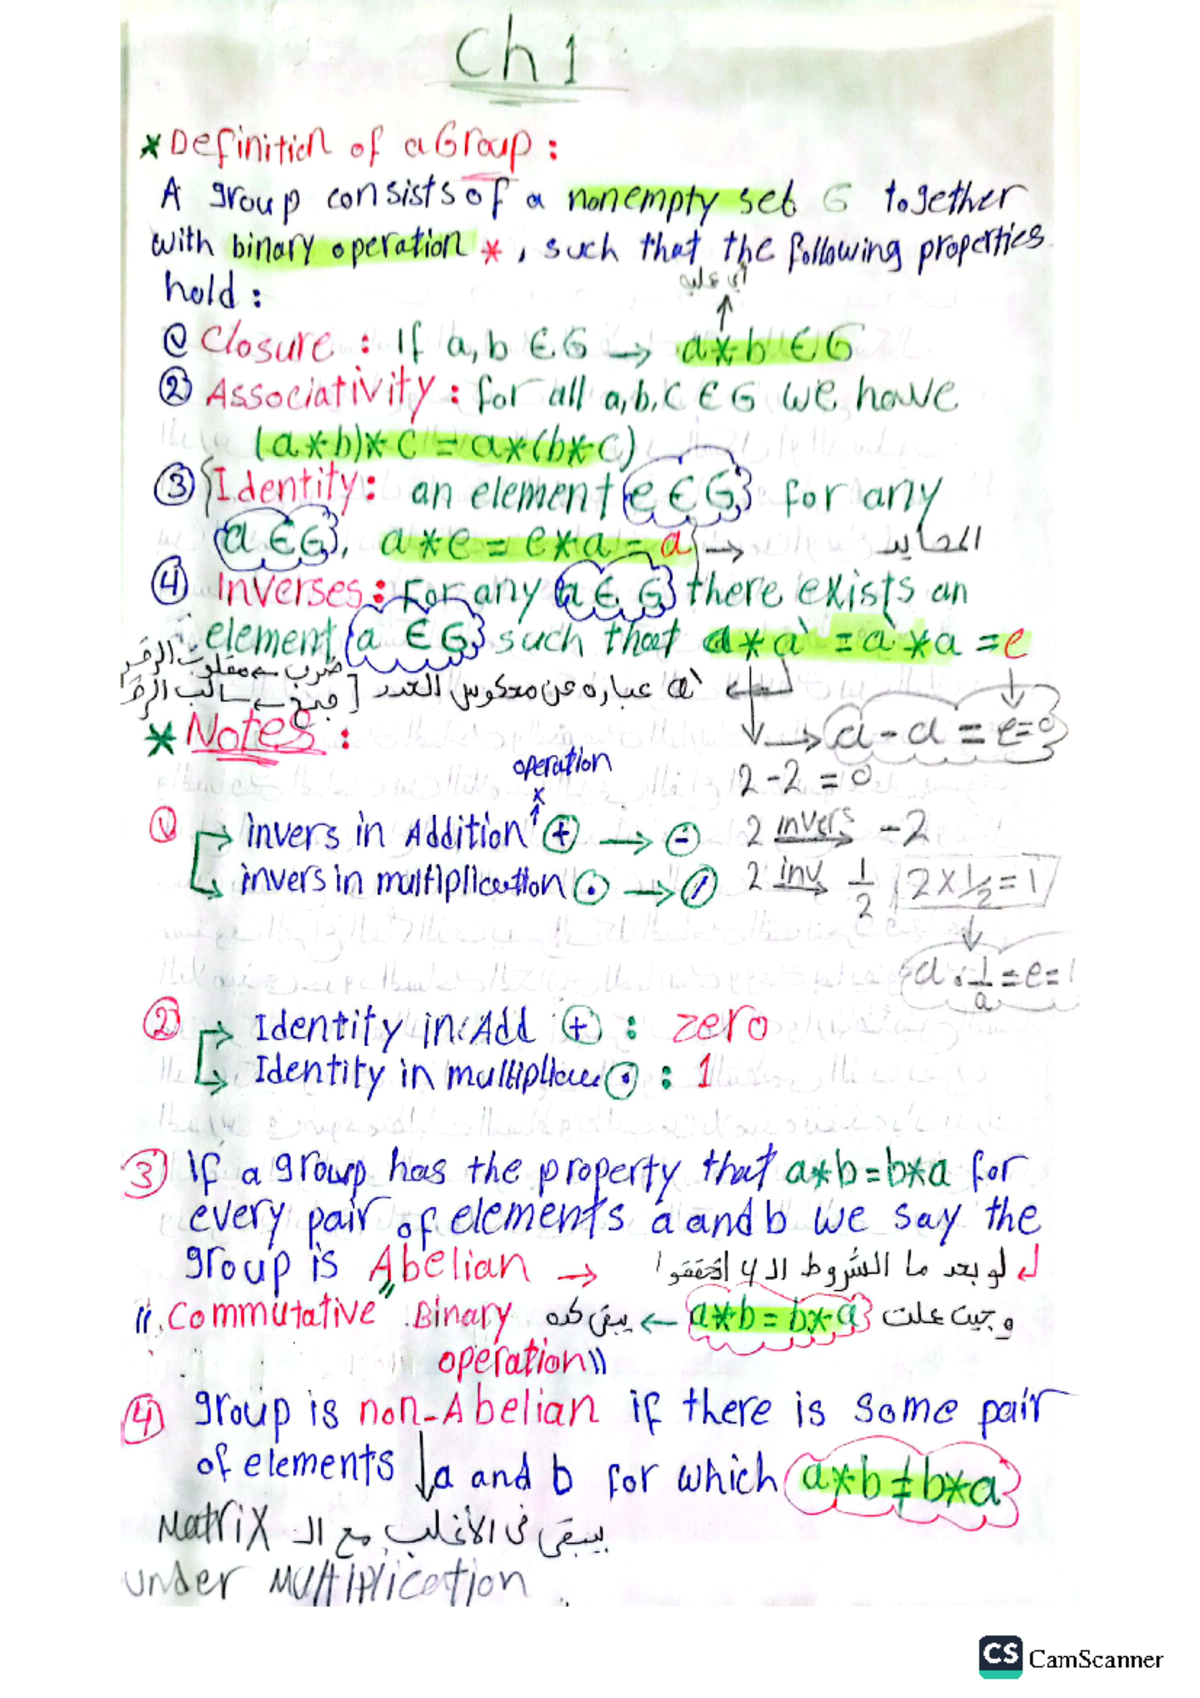 Ch 1
* Definition of a Group :
A group consists of a nonempty set G together
with binary operation * , such that the following properties
hold :
أي علية
↑
① Closure : If a, b ∈ G → a * b ∈ G
② Associativity : for all a, b, c ∈ G we have
(a * b) * c = a * (b * c)
③ Identity: an element e ∈ G for any
a ∈ G, a * e = e * a = a → المحايد
④ Inverses : For any a ∈ G there exists an
element a ∈ G such that a * a` = a` * a = e
ضرب ← مقلوب الرقم
a` عباره عن معكوس العدد [ جمع ← سالب الرقم
* Notes :
→ a - a = e = 0
2 - 2 = 0
operation
① → invers in Addition (+) → (-) 2 invers → -2
→ invers in multiplication (.) → (/) 2 inv → 1/2 2 x 1/2 = 1
a . 1/a = e = 1
② → Identity in Add (+) : zero
→ Identity in multiplicau (.) : 1
③ If a group has the property that a * b = b * a for
every pair of elements a and b we say the
group is Abelian → لو بعد ما الشروط الـ 4 اتحققوا
" Commutative Binary يبقى كده ← a * b = b * a وجيت علت
operation "
④ group is non-Abelian if there is some pair
of elements ↓ a and b for which a * b ≠ b * a
يبقى في الأغلب مع الـ Matrix
under Multiplication
CS CamScanner